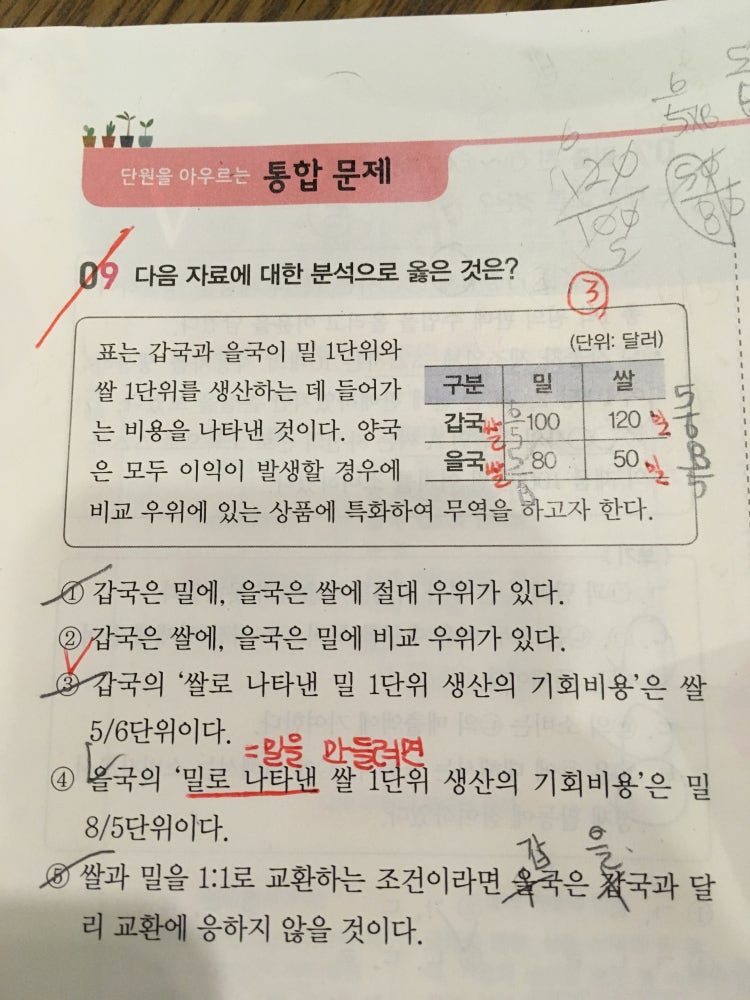 단원을 아우르는 통합 문제
09 다음 자료에 대한 분석으로 옳은 것은?
③
표는 갑국과 을국이 밀 1단위와
쌀 1단위를 생산하는 데 들어가
는 비용을 나타낸 것이다. 양국
은 모두 이익이 발생할 경우에
비교 우위에 있는 상품에 특화하여 무역을 하고자 한다.
(단위: 달러)
구분 밀 쌀
갑국 쌀 6/5 100 120 밀 5/6
을국 쌀 5/8 80 50 밀 8/5
① 갑국은 밀에, 을국은 쌀에 절대 우위가 있다.
② 갑국은 쌀에, 을국은 밀에 비교 우위가 있다.
③ 갑국의 ‘쌀로 나타낸 밀 1단위 생산의 기회비용’은 쌀
5/6단위이다.
=밀을 만들려면
④ 을국의 ‘밀로 나타낸 쌀 1단위 생산의 기회비용’은 밀
8/5단위이다.
갑 을
⑤ 쌀과 밀을 1:1로 교환하는 조건이라면 을국은 갑국과 달
리 교환에 응하지 않을 것이다.